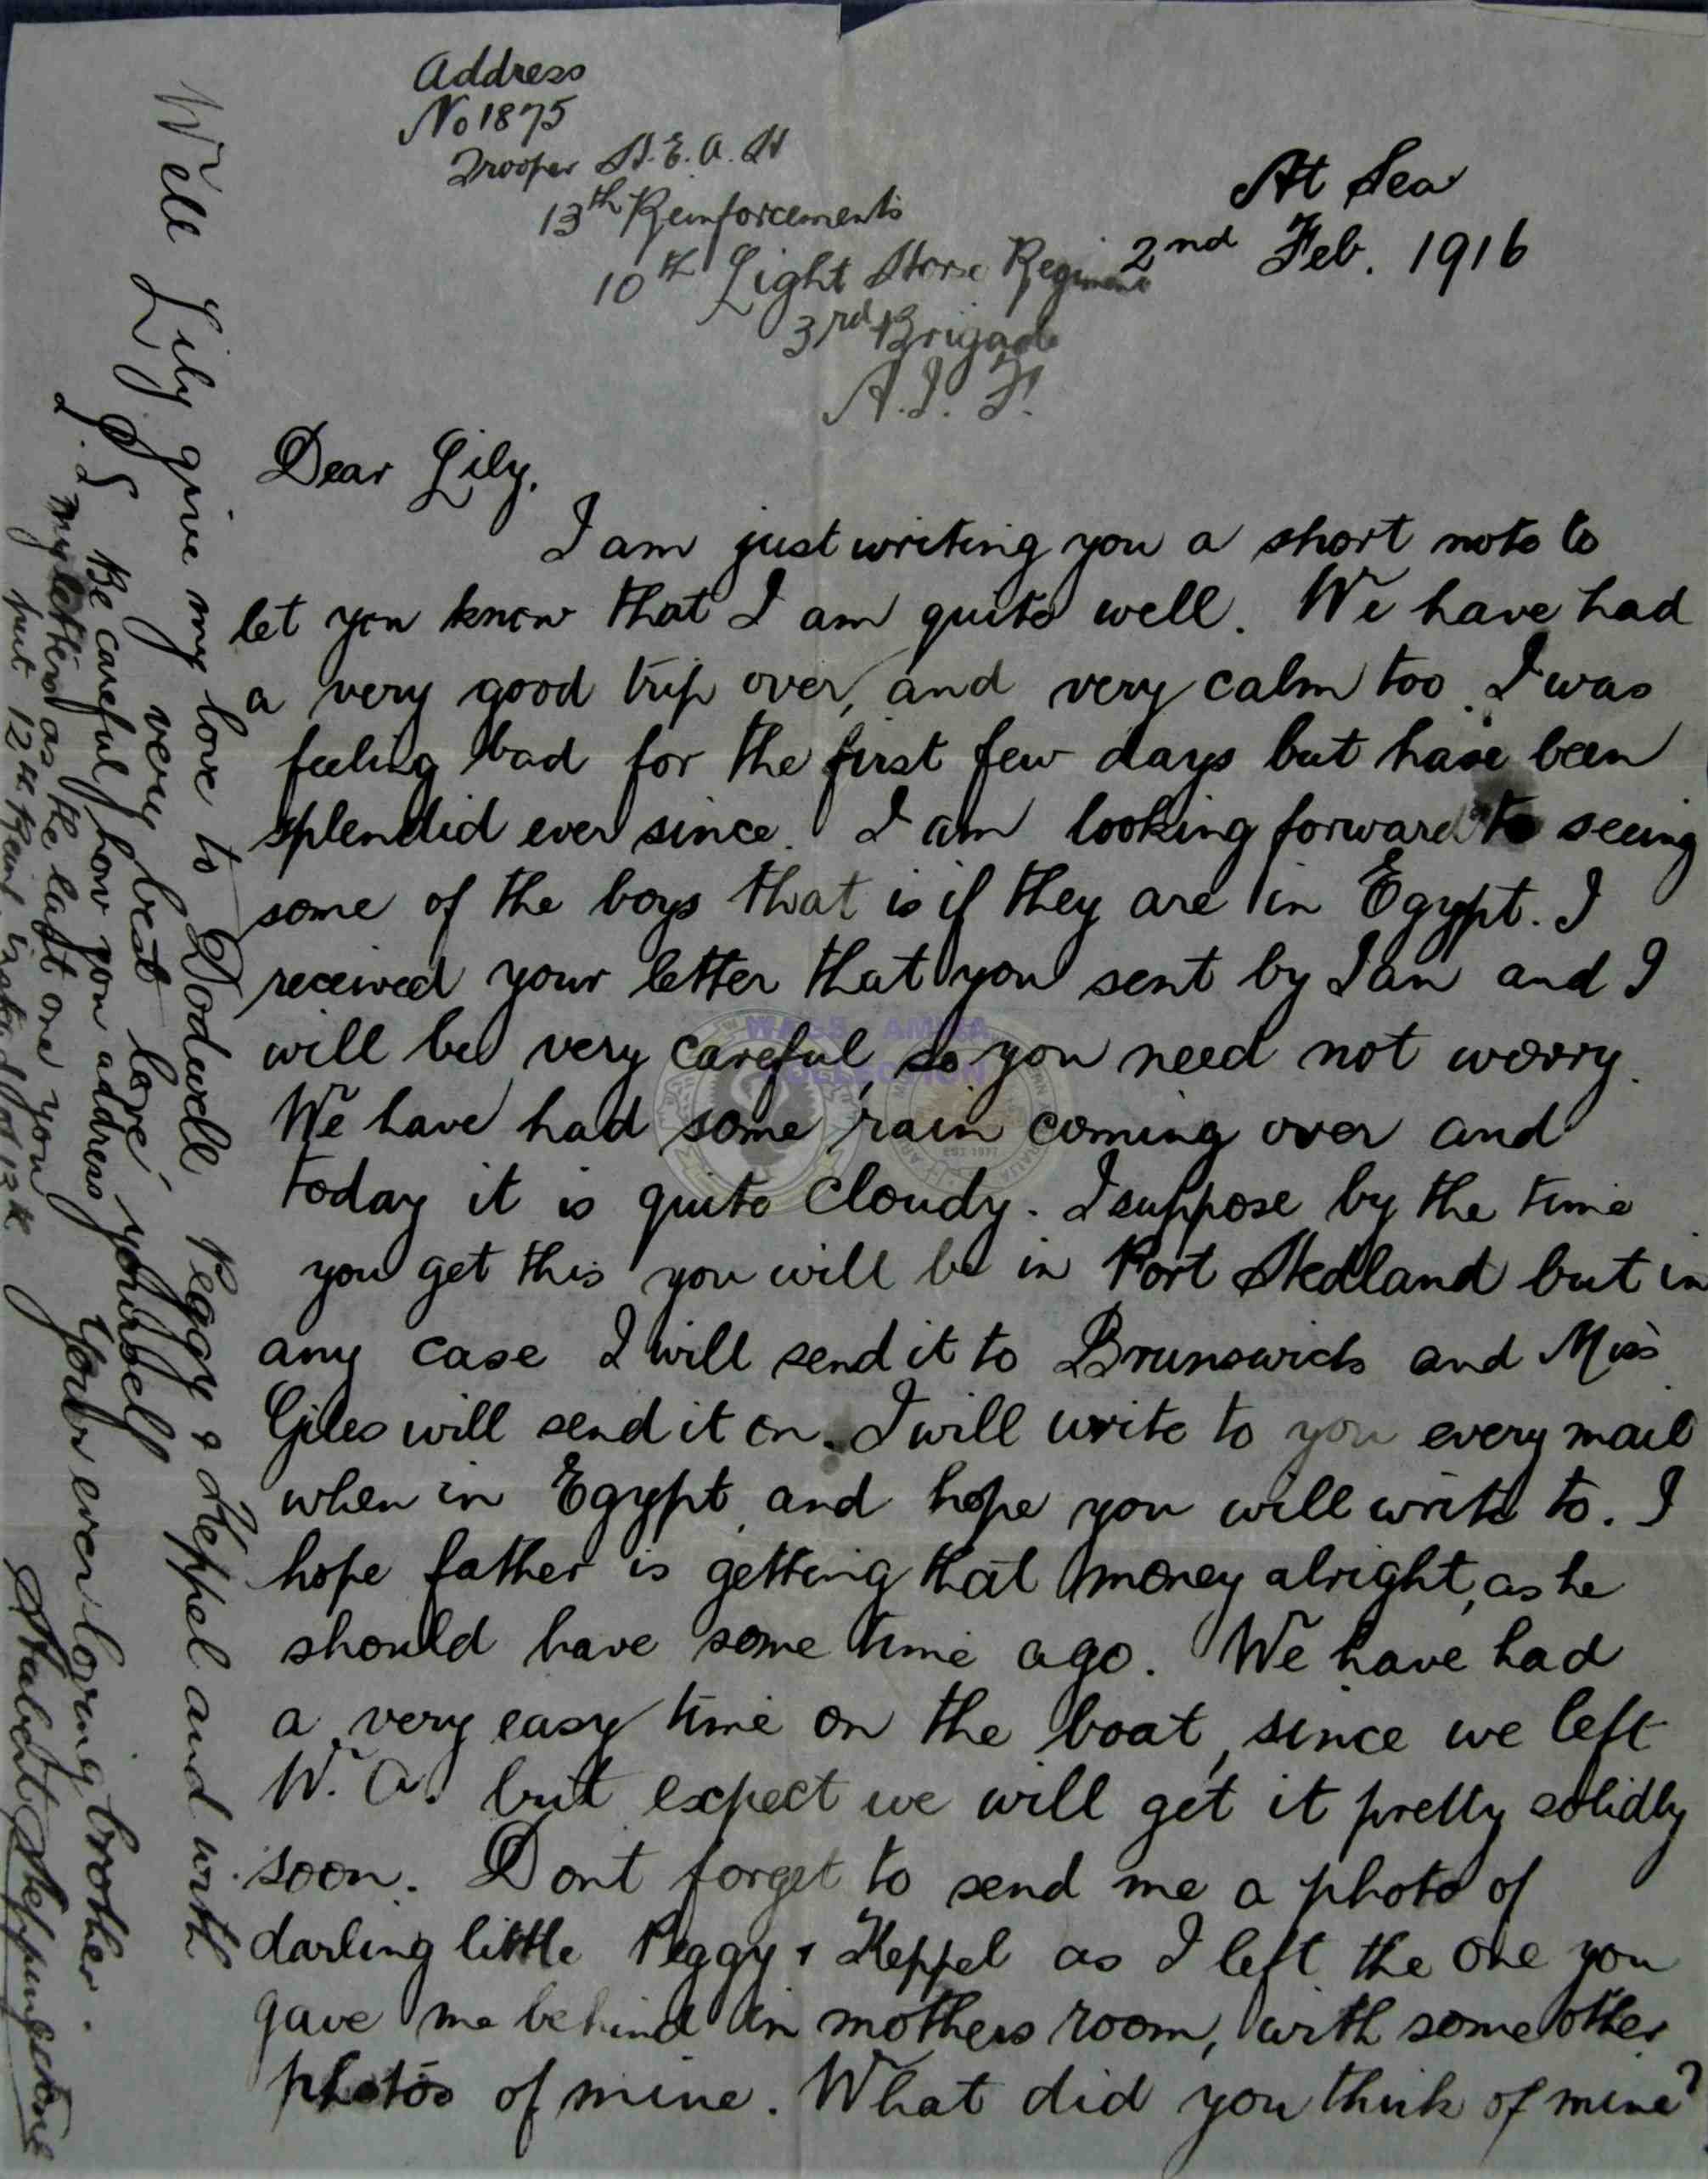 Address
No 1875
Trooper H. E. A. H
13th Reinforcements
10th Light Horse Regiment
3rd Brigade
A. I. F.
At Sea
2nd Feb. 1916
Dear Lily.
I am just writing you a short note to
let you know that I am quite well. We have had
a very good trip over, and very calm too. I was
feeling bad for the first few days but have been
splendid ever since. I am looking forward to seeing
some of the boys that is if they are in Egypt. I
received your letter that you sent by Ian and I
will be very careful, so you need not worry.
We have had some rain coming over and
today it is quite cloudy. I suppose by the time
you get this you will be in Port Hedland but in
any case I will send it to Brunswick and Miss
Giles will send it on. I will write to you every mail
when in Egypt, and hope you will write to. I
hope father is getting that money alright, as he
should have some time ago. We have had
a very easy time on the boat, since we left
W. A. but expect we will get it pretty solidly
soon. Dont forget to send me a photo of
darling little Peggy & Keppel as I left the one you
gave me behind in mothers room, with some other
photos of mine. What did you think of mine?
Well Lily give my love to Dodwell Peggy & Keppel and with
very best love, yourself
Your ever loving brother.
Hubert Heppingstone
P.S Be careful how you address
my letters as the last one you
put 12th Reinf. instead of 13th
WAGS AMMA
COLLECTION